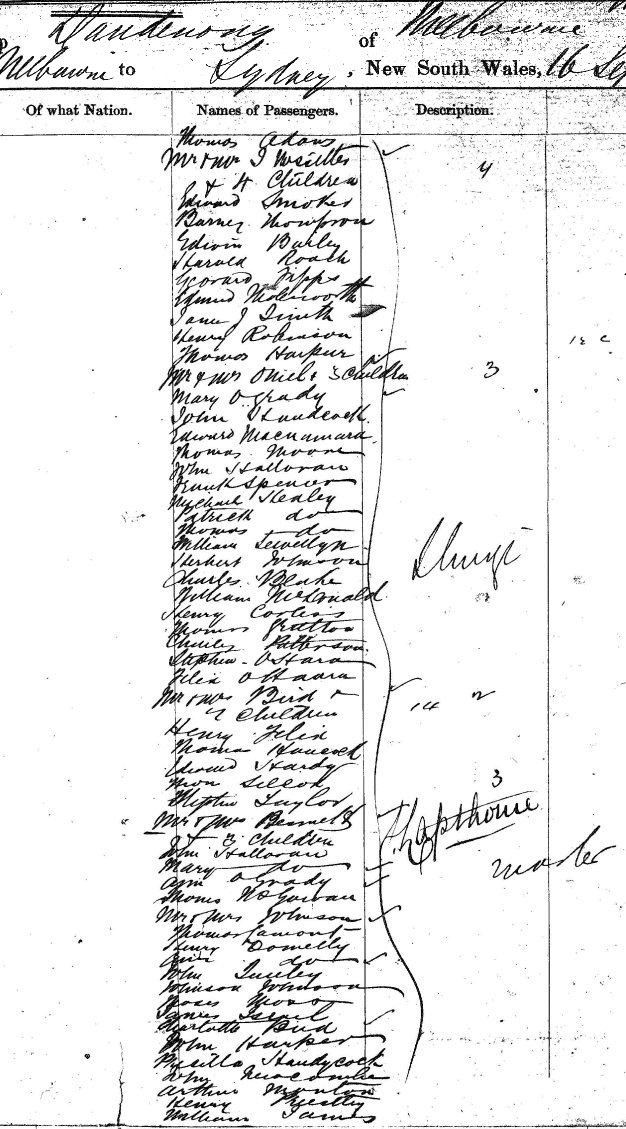 Dandenong of Melbourne
Melbourne to Sydney, New South Wales, 16 Sep
Of what Nation. Names of Passengers. Description.
Thomas Adams
Mr & Mrs J
& 4 Children 4
Edward Smokes
Barney Thompson
Edwin Burley
Harold Roach
George Fipps
Edmund Molesworth
James J Smith
Henry Robinson
Thomas Harpur
Mr & Mrs Oniel & 3 Children 3
Mary O'Grady
John Handcock
Edward Macnamara
Thomas Moore
John Halloran
Frank Spencer
Michael Healey
Patrick do
Thomas do
William Lewellyn
Herbert Johnson
Charles Blake
William McDonald
Henry
Thomas Gratton
Charles Patterson
Stephen O'Hara
Felix O'Hara
Mr & Mrs Bird &
2 Children 14 2
Henry Felix
Thomas Hancock
Edward Hardy
Stephen Taylor
Mr & Mrs Bennett 3
& 3 Children
John Halloran
Mary do
Master
Ann O'Grady
Thomas McGowan
Mr & Mrs Johnson
Thomas Lamont
Henry Donnelly
Ann do
John
Johnson Johnson
Moses Moss
James Israel
Charlotte Bird
John Harper
Priscilla Handycock
John Newcombe
Arthur Morton
Henry Priestley
William James